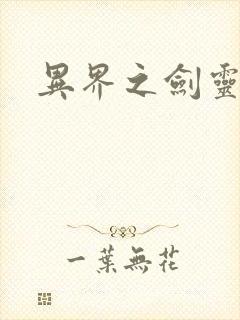 異界之劍靈
一葉無花